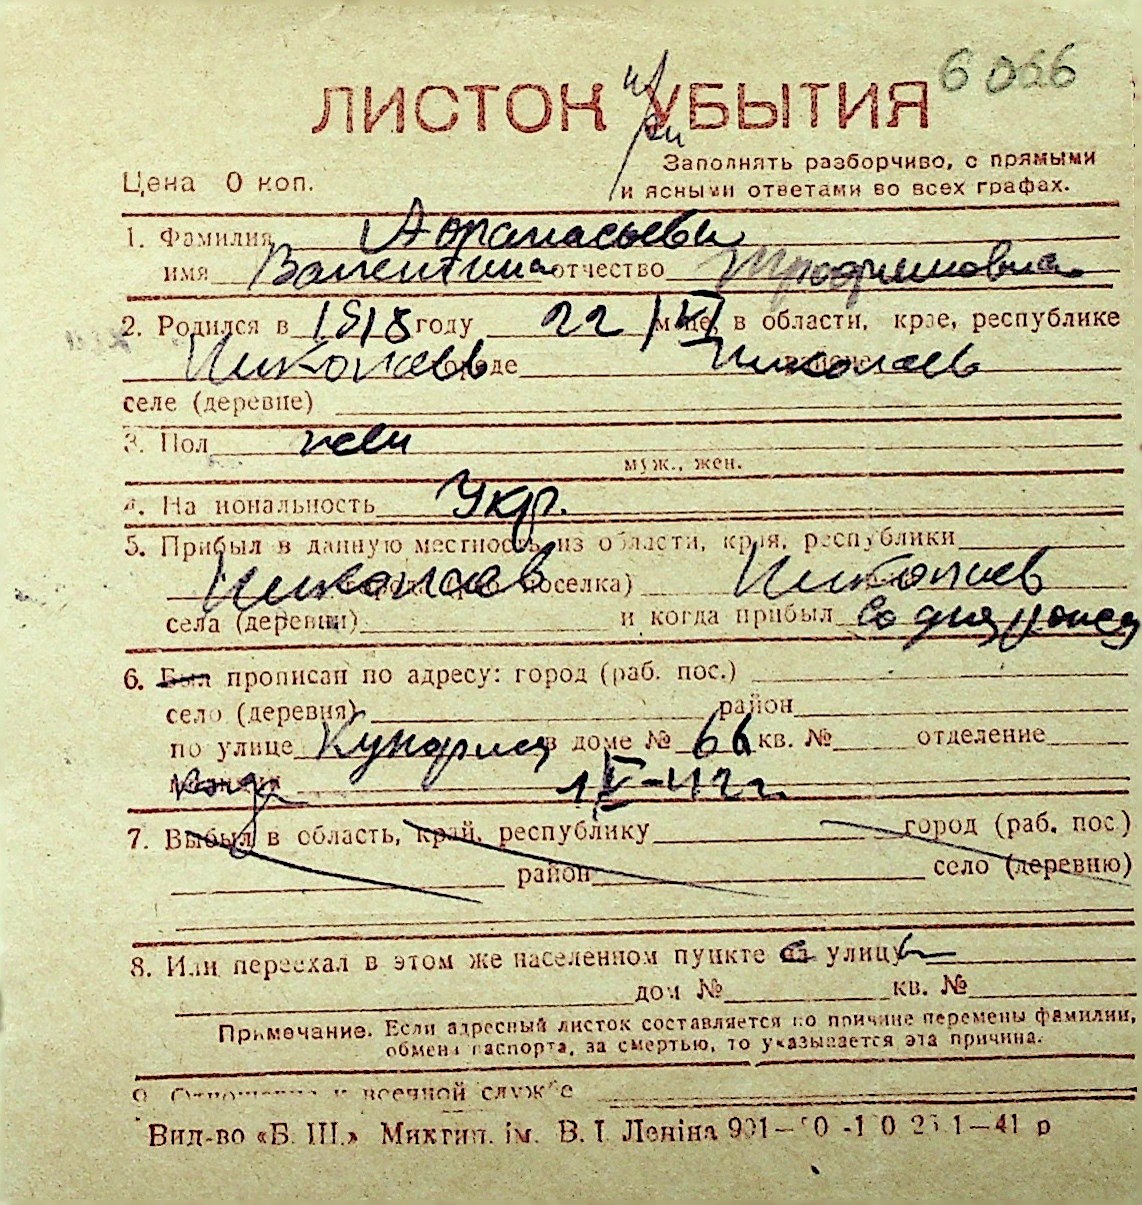 6066
ЛИСТОК УБЫТИЯ
Цена 0 коп.
Заполнять разборчиво, с прямыми
и ясными ответами во всех графах.
1. Фамилия Афанасьева
имя Валентина отчество Трофимовна
2. Родился в 1918 году 22/VI м-це, в области, крае, республике
Николаев городе Николаев
селе (деревне)
3. Пол жен
муж., жен.
4. Национальность Укр.
5. Прибыл в данную местность из области, края, республики
Николаев поселка) Николаев
села (деревни) и когда прибыл со дня рожд
6. Был прописан по адресу: город (раб. пос.)
село (деревня) район
по улице в доме № 66 кв. № отделение
1/V-42 г.
7. Выбыл в область, край, республику город (раб. пос.)
район село (деревню)
8. Или переехал в этом же населенном пункте на улицу
дом № кв. №
Примечание. Если адресный листок составляется по причине перемены фамилии,
обмена паспорта, за смертью, то указывается эта причина.
9. Отношение к военной службе
Вид-во «Б. Ш.» Микгип. ім. В. І. Леніна